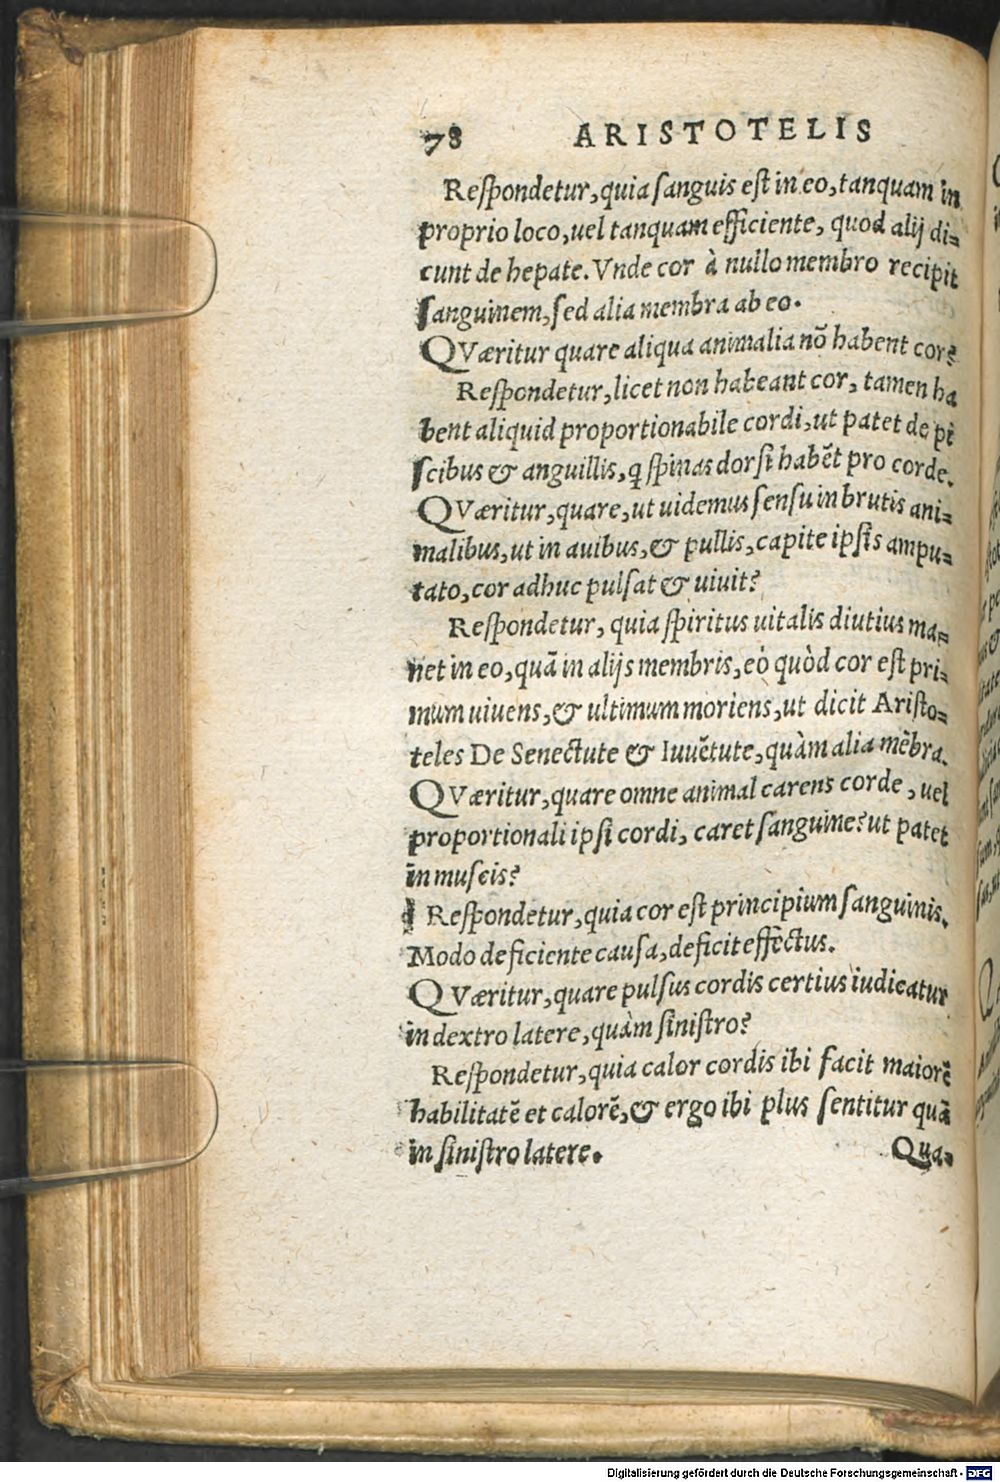 78 ARISTOTELIS
Respondetur, quia sanguis est in eo, tanquam in
proprio loco, uel tanquam efficiente, quod alij di=
cunt de hepate. Vnde cor à nullo membro recipit
sanguinem, sed alia membra ab eo.
QVæritur quare aliqua animalia nō habent cor?
Respondetur, licet non habeant cor, tamen ha
bent aliquid proportionabile cordi, ut patet de pi
scibus & anguillis, q spinas dorsi habēt pro corde.
QVæritur, quare, ut uidemus sensu in brutis ani=
malibus, ut in auibus, & pullis, capite ipsis ampu=
tato, cor adhuc pulsat & uiuit?
Respondetur, quia spiritus uitalis diutius ma=
net in eo, quā in alijs membris, eò quòd cor est pri=
mum uiuens, & ultimum moriens, ut dicit Aristo=
teles De Senectute & Iuuētute, quàm alia mēbra.
QVæritur, quare omne animal carens corde, uel
proportionali ipsi cordi, caret sanguine? ut patet
in muscis?
Respondetur, quia cor est principium sanguinis.
Modo deficiente causa, deficit effectus.
QVæritur, quare pulsus cordis certius iudicatur
in dextro latere, quàm sinistro?
Respondetur, quia calor cordis ibi facit maiorē
habilitatē et calorē, & ergo ibi plus sentitur quā
in sinistro latere. Qua=
Digitalisierung gefördert durch die Deutsche Forschungsgemeinschaft - DFG